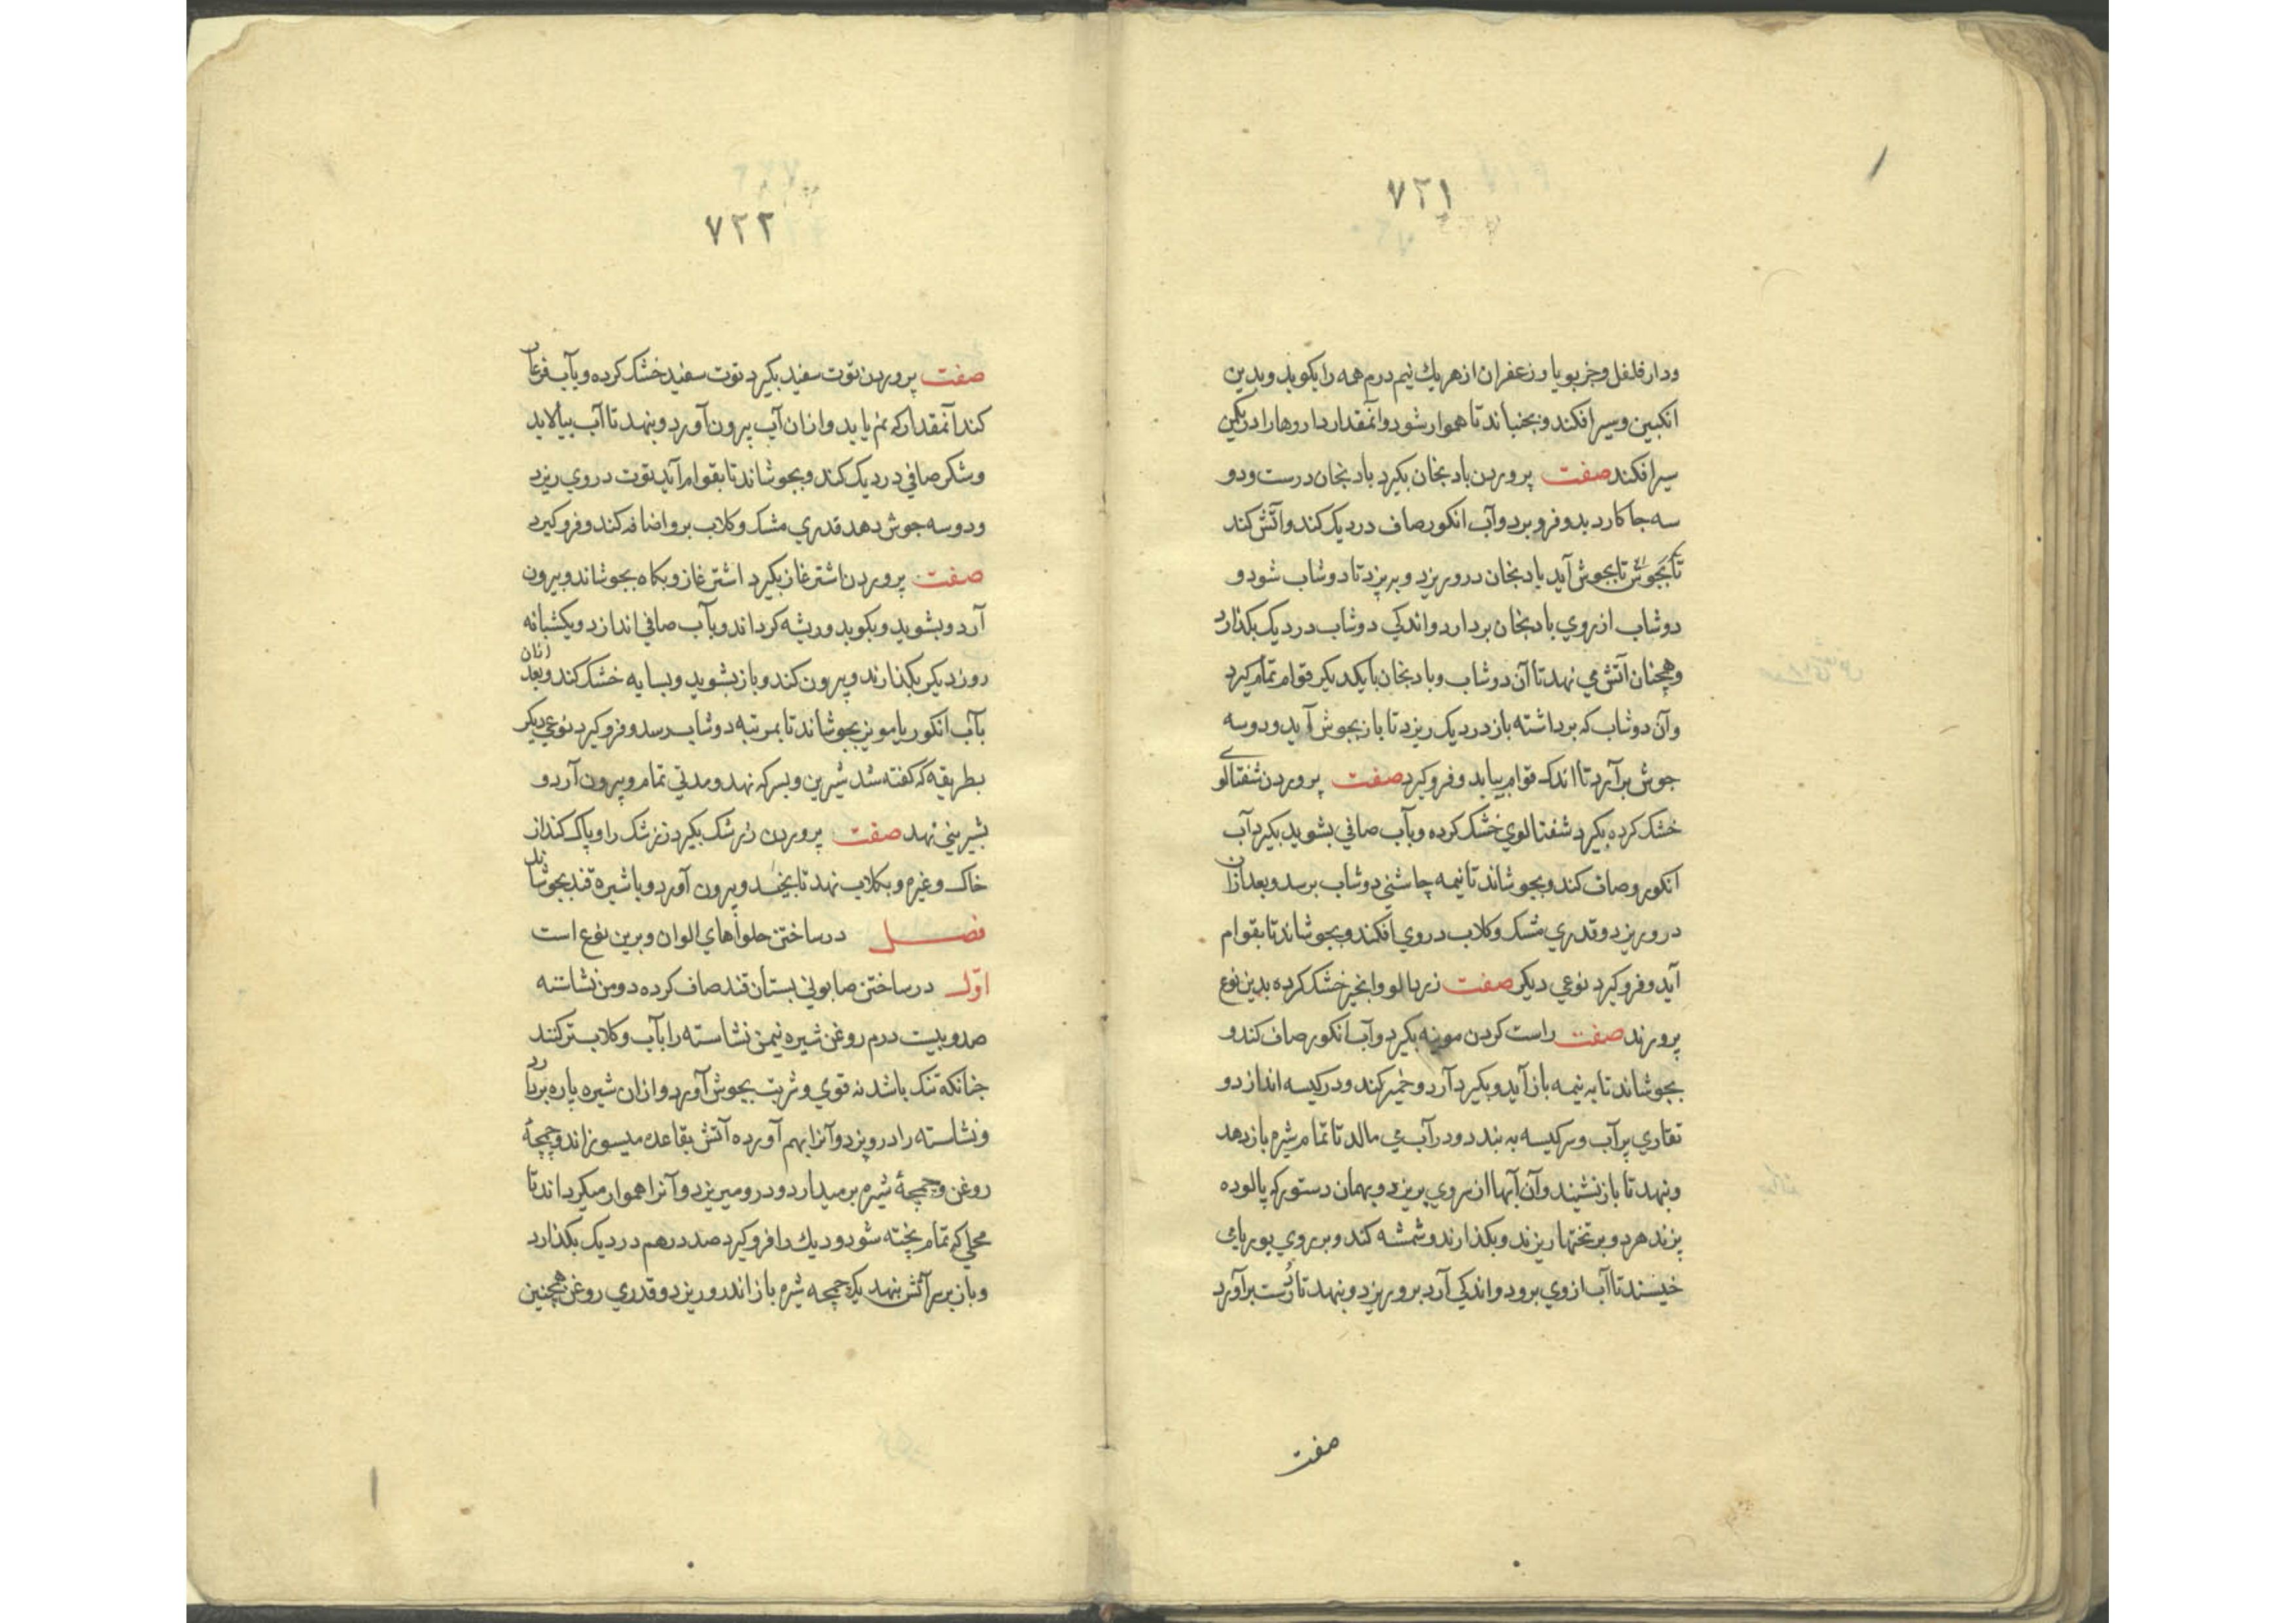 ۷۲۱
ودار فلفل وخربویا وزعفران از هر یك نیم درم همه را بکوبد وبدین
انکبین وسیر افکند وبجنباند تا هموار شود وآنمقدار داروها را در
سیر افکند صفت پروردن بادنجان بکیرد بادنجان درست ودو
سه جا کارد بدو فرو برد وآب انکور صاف در دیک کند وآتش کند
تا بجوش آید بادنجان درو ریزد وبپزد تا دوشاب شود و
دوشاب از روی بادنجان بردارد واندکی دوشاب در دیک بکذارد
وهمچنان آتش می نهد تا آن دوشاب وبادنجان بایکدیکر قوام تمام کیرد
وآن دوشاب که برداشته باز در دیک ریزد تا باز بجوش آید ودوسه
جوش برآرد تا اندک قوام بیابد وفروکیرد صفت پروردن شفتالوی
خشک کرده بکیرد شفتالوی خشک کرده وبآب صافی بشوید بکیرد آب
انکور وصاف کند وبجوشاند تا نیمه چاشنی دوشاب برسد وبعد ازان
درو ریزد وقدری مشک وکلاب در وی افکند وبجوشاند تا بقوام
آید وفروکیرد نوعی دیکر صفت زردالو وانجیر خشک کرده بدین نوع
پرورند صفت راست کردن موزینه بکیرد وآب انکور صاف کند و
بجوشاند تا به نیمه باز آید وبکیرد آرد وخمیر کند ودر کیسه اندازد و
تغاری پر آب وسر کیسه به بندد ودر آب می مالد تا تمام شیره باز دهد
وبنهد تا بازنشیند وآن آبها از روی بریزد وبهمان دستور که پالوده
پزند هردو بر تختها ریزند وبکذارند وشمشه کند وبر روی بوریای
خیسند تا آب از وی برود واندکی آرد برو ریزد وبنهد تا رست برآورد
صفت
۷۲۲
صفت پروردن توت سفید بکیرد توت سفید خشک کرده وبآب فرغار
کند آنمقدار که نم یابد وازان آب بیرون آورد وبنهد تا آب بپالاید
وشکر صافی در دیک کند وبجوشاند تا بقوام آید توت در وی ریزد
ودوسه جوش دهد قدری مشک وکلاب برو اضافه کند وفروکیرد
صفت پروردن اشترغاز بکیرد اشترغاز وبکاه بجوشاند وبیرون
آرد وبشوید وبکوبد وریشه کرداند وبآب صافی اندازد ویکشبانه
روز دیکر بکذارند وبیرون کند وباز بشوید وبسایه خشک کند وبعد ازان
بآب انکور یا مویز بجوشاند تا بمرتبه دوشاب رسد وفروکیرد نوعی دیکر
بطریقه که کفته شد شیرین وبسرکه نهد ومدتی تمام وبیرون آرد و
بشیرینی نهد صفت پروردن زرشک بکیرد زرشک را وپاک کند از
خاک وغیره وبکلاب نهد تا بخیسد وبیرون آورد وبا شیره قند بجوشاند
فصل در ساختن حلواهای الوان وبرین نوع است
اوّل در ساختن صابونی بستان قند صاف کرده دو من نشاسته
صدوبیست درم روغن شیره نیمن نشاسته را بآب وکلاب تر کنند
چنانکه تنک باشد نه قوی وشربت بجوش آورد وازان شیره پاره بردارد
ونشاسته را درو پزد وآنرا بهم آورده آتش بقاعده میسوزاند وچمچهٔ
روغن وچمچهٔ شیره برمیدارد ودرو میریزد وآنرا هموار میکرداند تا
محلی که تمام پخته شود ودیك را فروکیرد صد درهم در دیک بکذارد
وباز بر سر آتش بنهد یک چمچه شیره باز اندرو ریزد وقدری روغن همچنین